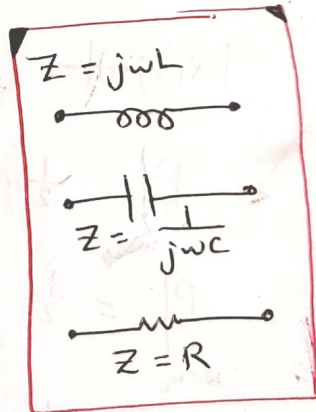 Z = jwL
Z = 1/jwC
Z = R